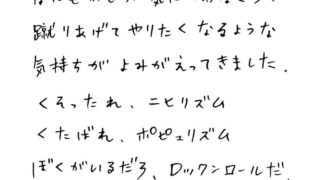 蹴りあげてやりたくなるような
気持ちがよみがえってきました.
くそったれ、ニヒリズム
くたばれ、ポピュリズム
ぼくがいるだろ、ロックンロールだ.